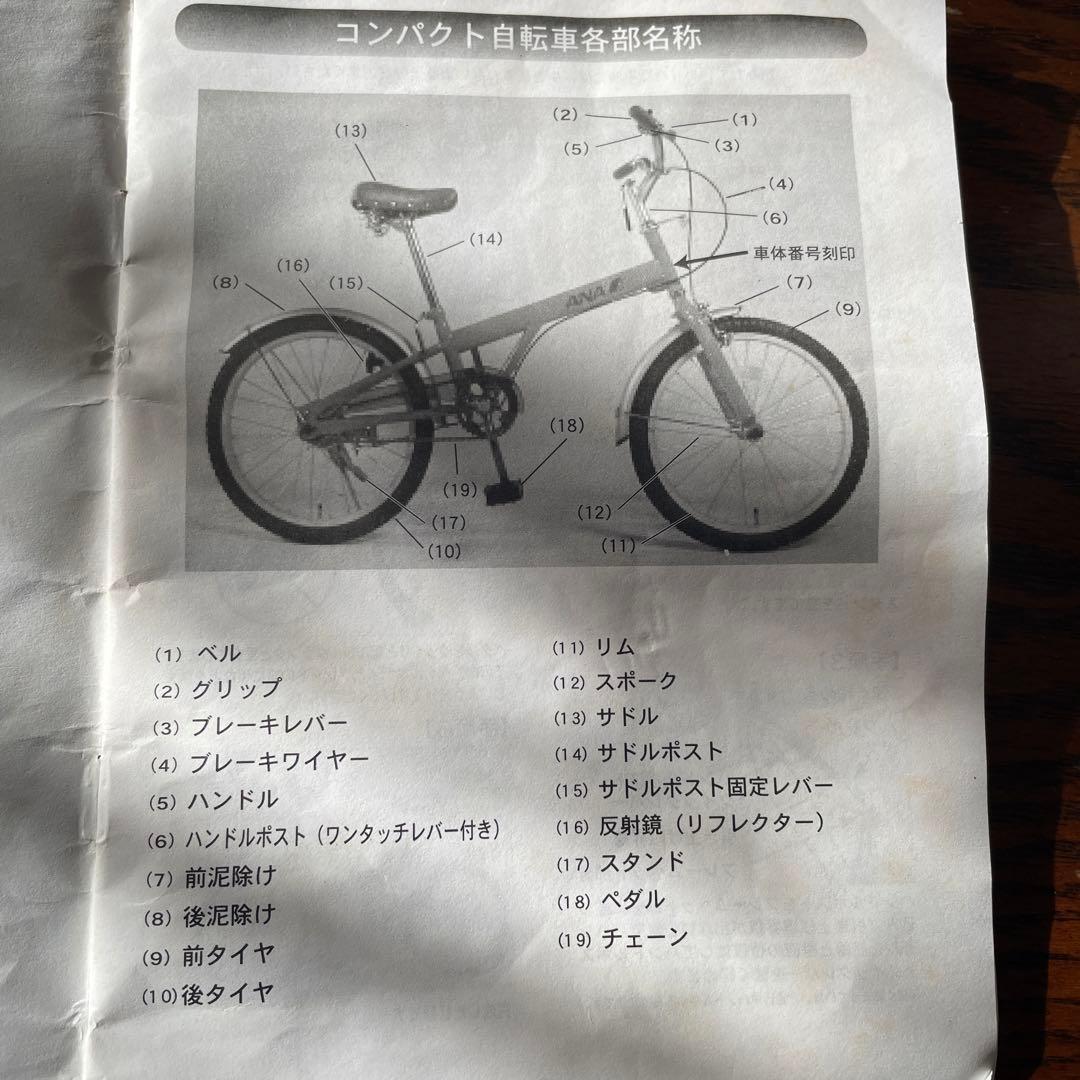 コンパクト自転車各部名称
(2)
(1)
(13)
(5)
(3)
(4)
(6)
(14)
車体番号刻印
(16)
(8)
(15)
(7)
ANA
(9)
(18)
(19)
(12)
(17)
(11)
(10)
(1) ベル
(2) グリップ
(3) ブレーキレバー
(4) ブレーキワイヤー
(5) ハンドル
(6) ハンドルポスト(ワンタッチレバー付き)
(7) 前泥除け
(8) 後泥除け
(9) 前タイヤ
(10)後タイヤ
(11) リム
(12) スポーク
(13) サドル
(14) サドルポスト
(15) サドルポスト固定レバー
(16) 反射鏡(リフレクター)
(17) スタンド
(18) ペダル
(19) チェーン